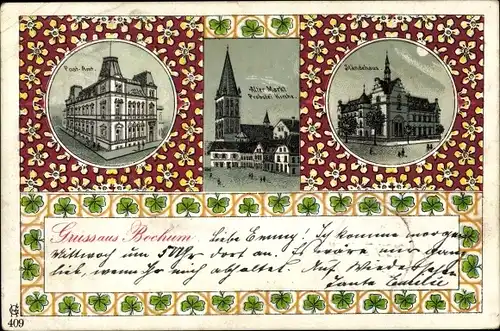 Post-Amt.
Alter Markt
Probstei Kirche.
Ständehaus.
Gruss aus Bochum.
Liebe Emmy! Ich komme morgen
Mittwoch um 5 Uhr dort an. Es wäre mir ganz
lieb, wenn Ihr mich abholtet. Auf Wiedersehen
Tante
409